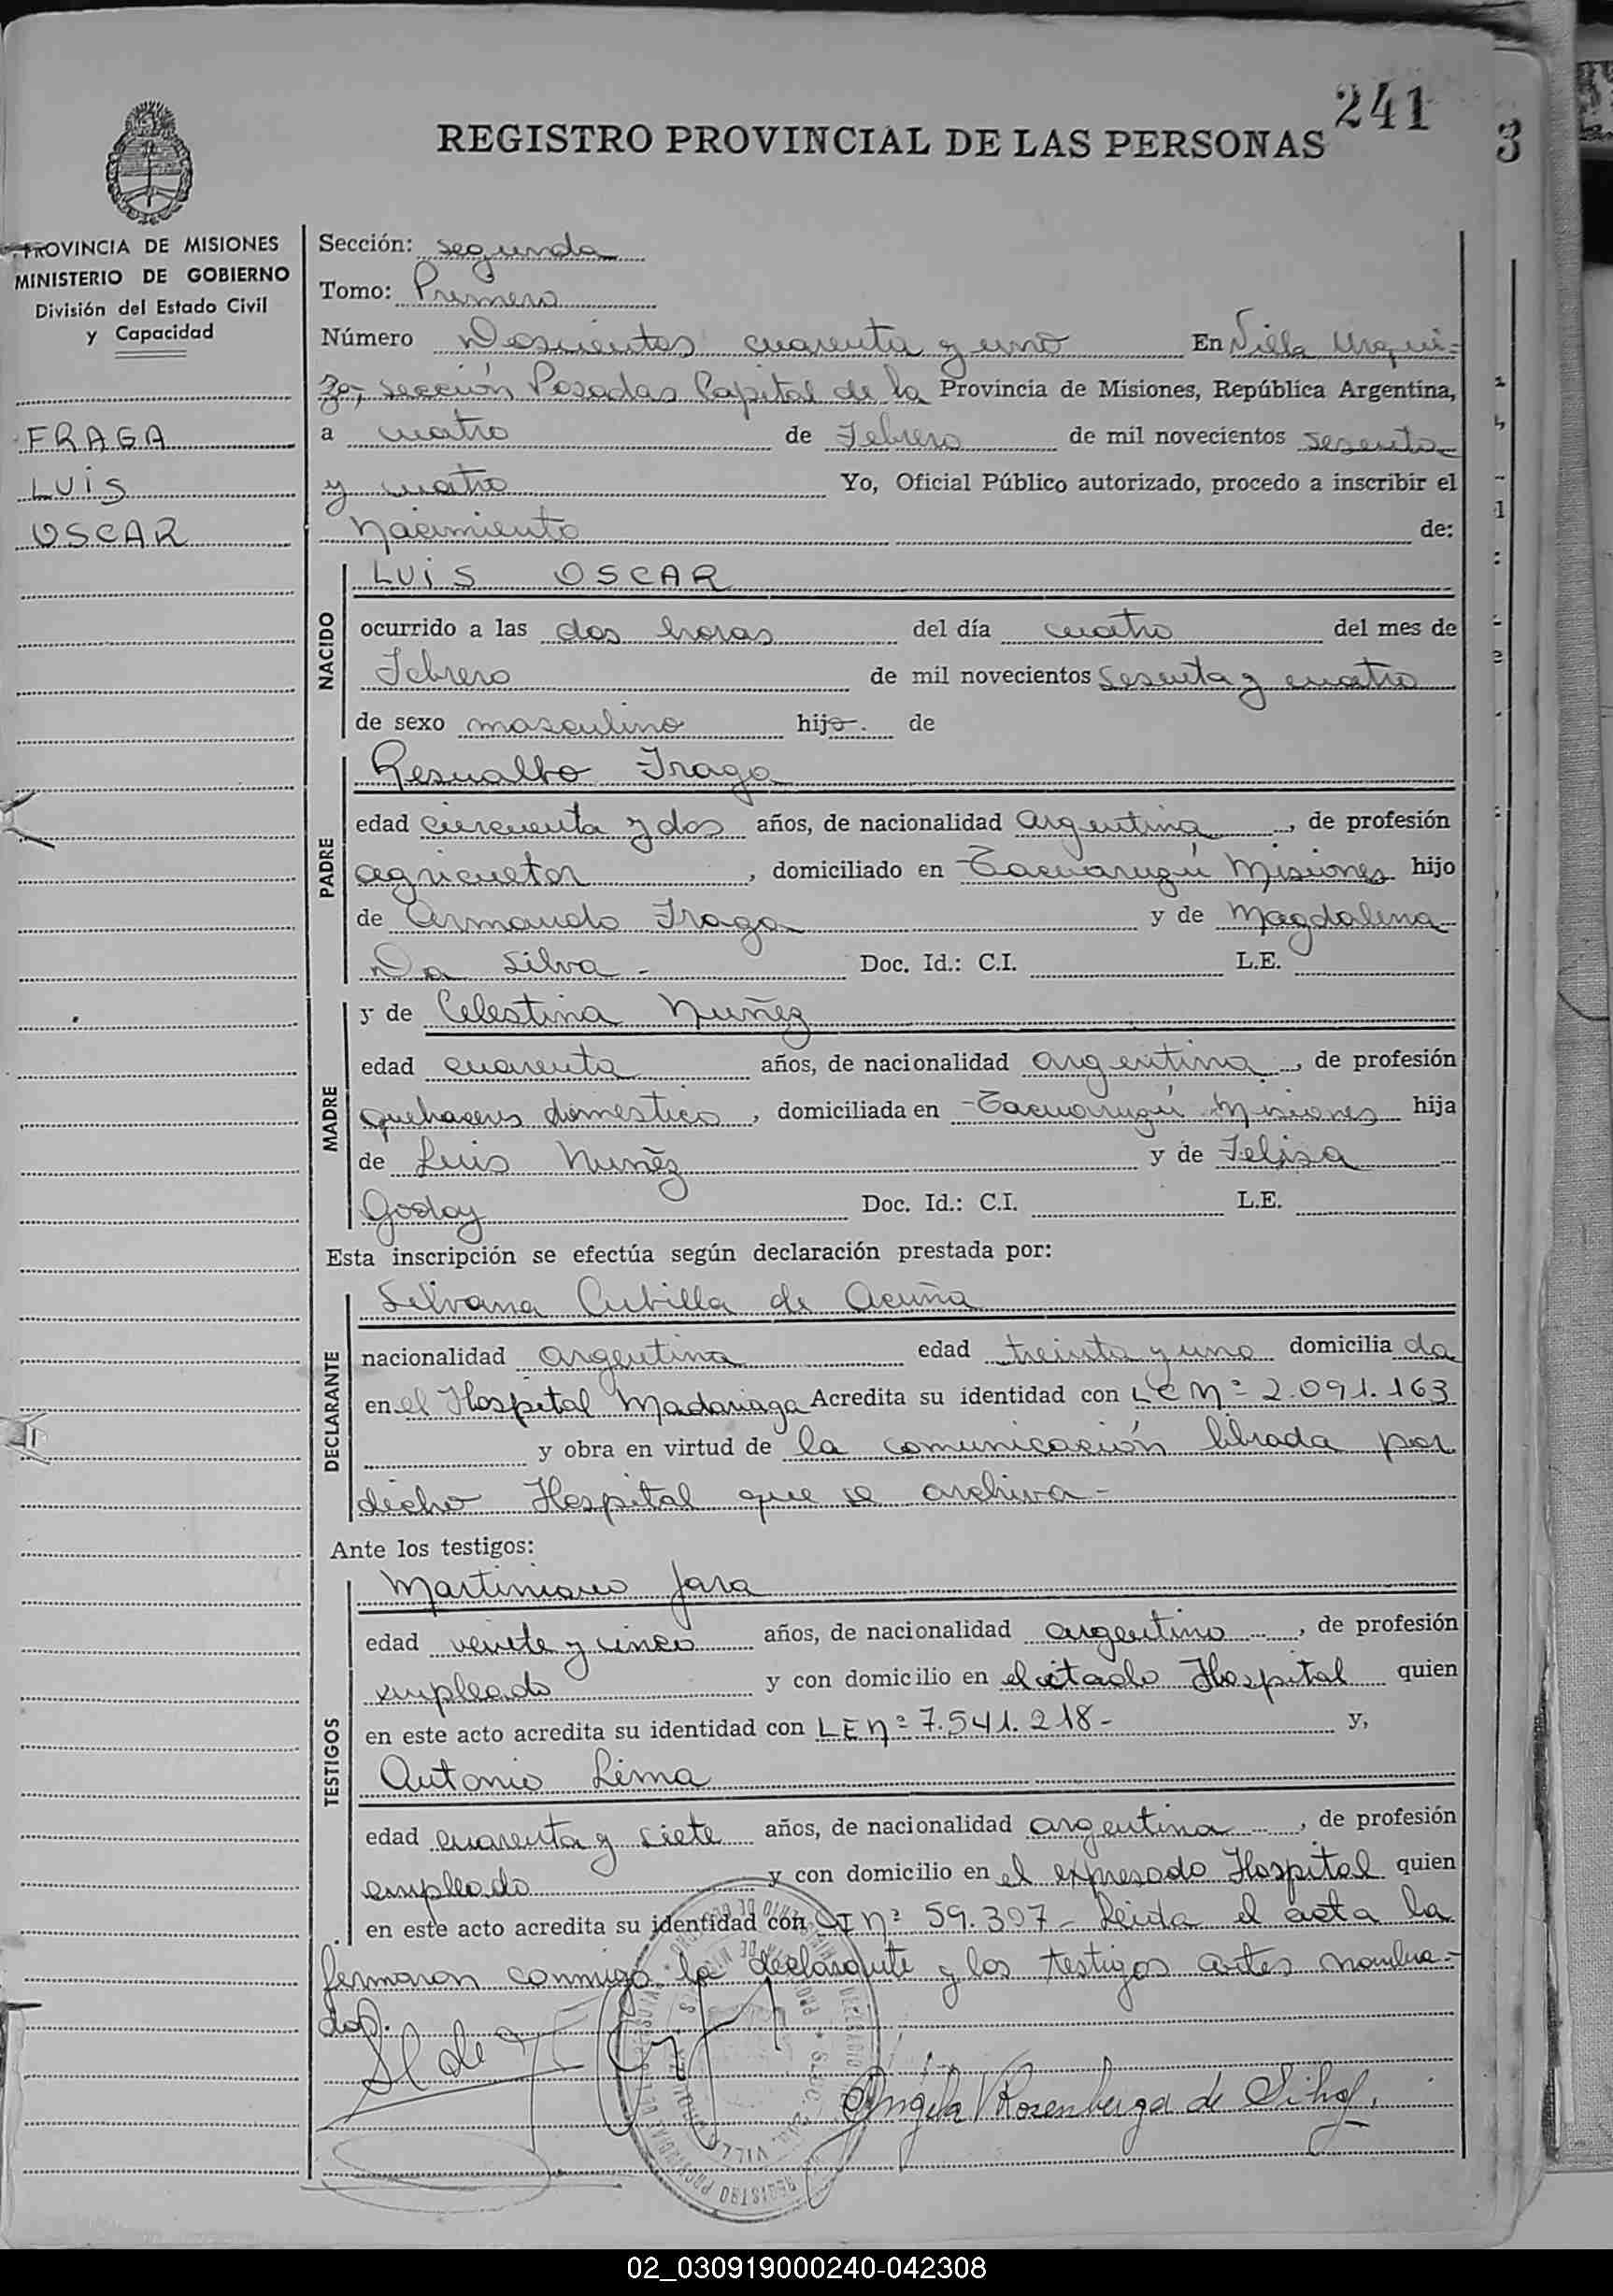 241
REGISTRO PROVINCIAL DE LAS PERSONAS
3
PROVINCIA DE MISIONES
MINISTERIO DE GOBIERNO
División del Estado Civil
y Capacidad
FRAGA
LUIS
OSCAR
Sección: segunda
Tomo: Primero
Número Doscientos cuarenta y uno En Villa Urqui=
za, sección Posadas Capital de la Provincia de Misiones, República Argentina,
a cuatro de Febrero de mil novecientos sesenta
y cuatro Yo, Oficial Público autorizado, procedo a inscribir el
nacimiento de:
NACIDO
LUIS OSCAR
ocurrido a las dos horas del día cuatro del mes de
Febrero de mil novecientos sesenta y cuatro
de sexo masculino hijo. de
PADRE
Fraga
edad cincuenta y dos años, de nacionalidad argentina, de profesión
agricultor, domiciliado en Tacuaruzú Misiones hijo
de Armando Fraga y de Magdalena
Da Silva - Doc. Id.: C.I. L.E.
MADRE
y de Celestina Nuñez
edad cuarenta años, de nacionalidad argentina, de profesión
quehaceres domestico, domiciliada en Tacuaruzú Misiones hija
de Luis Nuñez y de Felisa
Godoy Doc. Id.: C.I. L.E.
Esta inscripción se efectúa según declaración prestada por:
DECLARANTE
Silvana Cubilla de Acuña
nacionalidad argentina edad treinta y uno domiciliada
en el Hospital Madariaga Acredita su identidad con LC Nº 2.091.163
y obra en virtud de la comunicación librada por
dicho Hospital que se archiva -
Ante los testigos:
TESTIGOS
Martiniano Jara
edad veinte y cinco años, de nacionalidad argentino, de profesión
empleado y con domicilio en el citado Hospital quien
en este acto acredita su identidad con LE nº 7.541.218- y,
Antonio Lima
edad cuarenta y siete años, de nacionalidad argentina, de profesión
empleado y con domicilio en el expresado Hospital quien
en este acto acredita su identidad con CI nº 59.307- Leida el acta la
firmaron conmigo la declarante y los testigos antes nombra=
dos.
Angela Rosenberga de
02_030919000240-042308